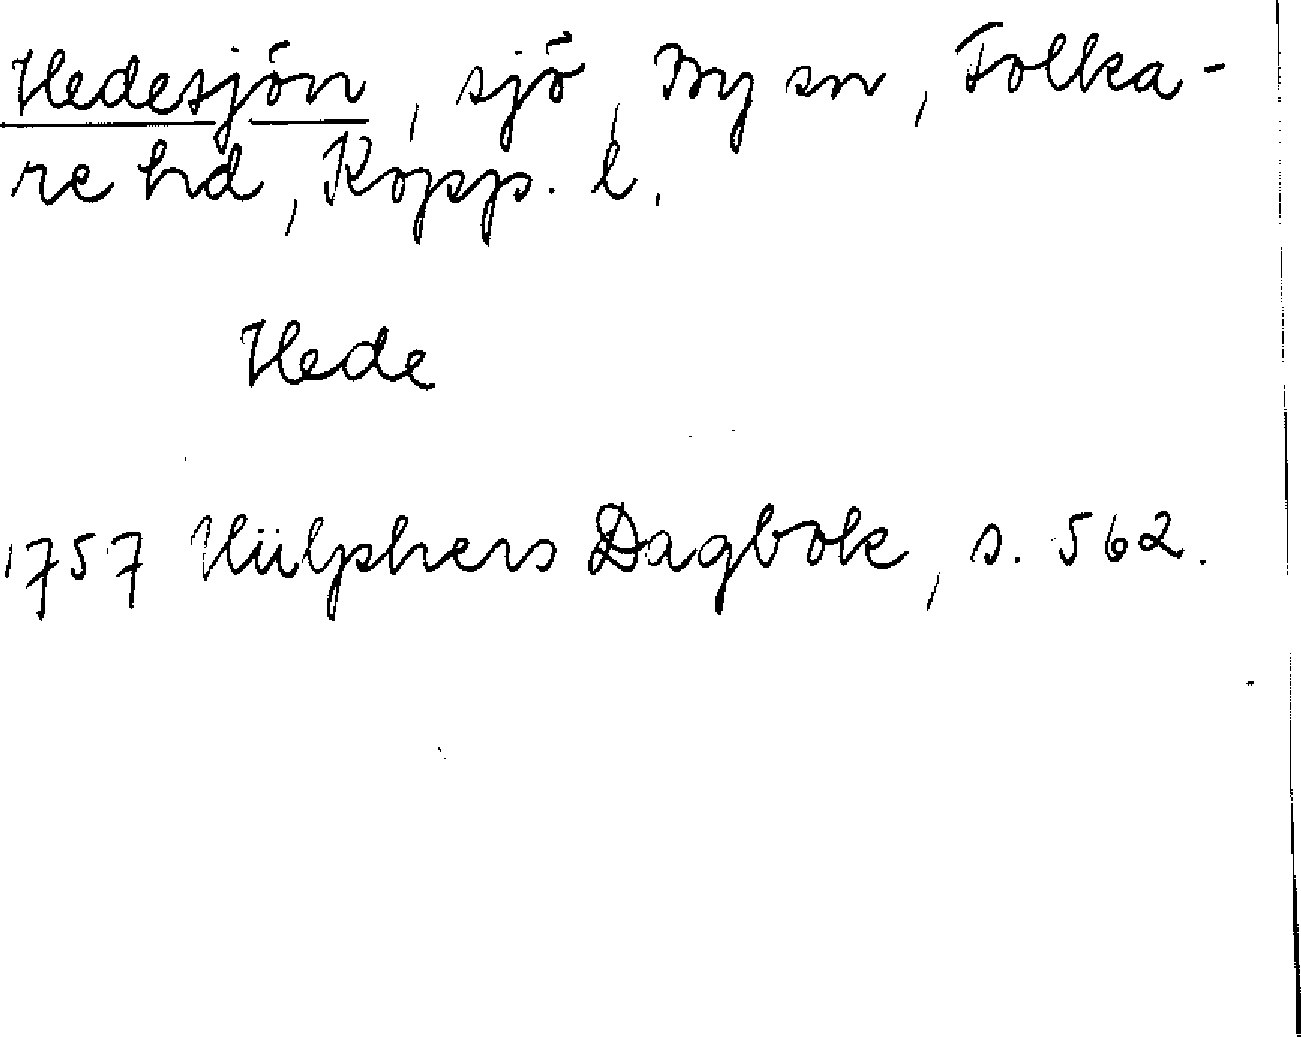 Hedesjön, sjö, By sn, Folka-
re hd, Kopp. l.
Hede
1757 Hülphers Dagbok, s. 562.